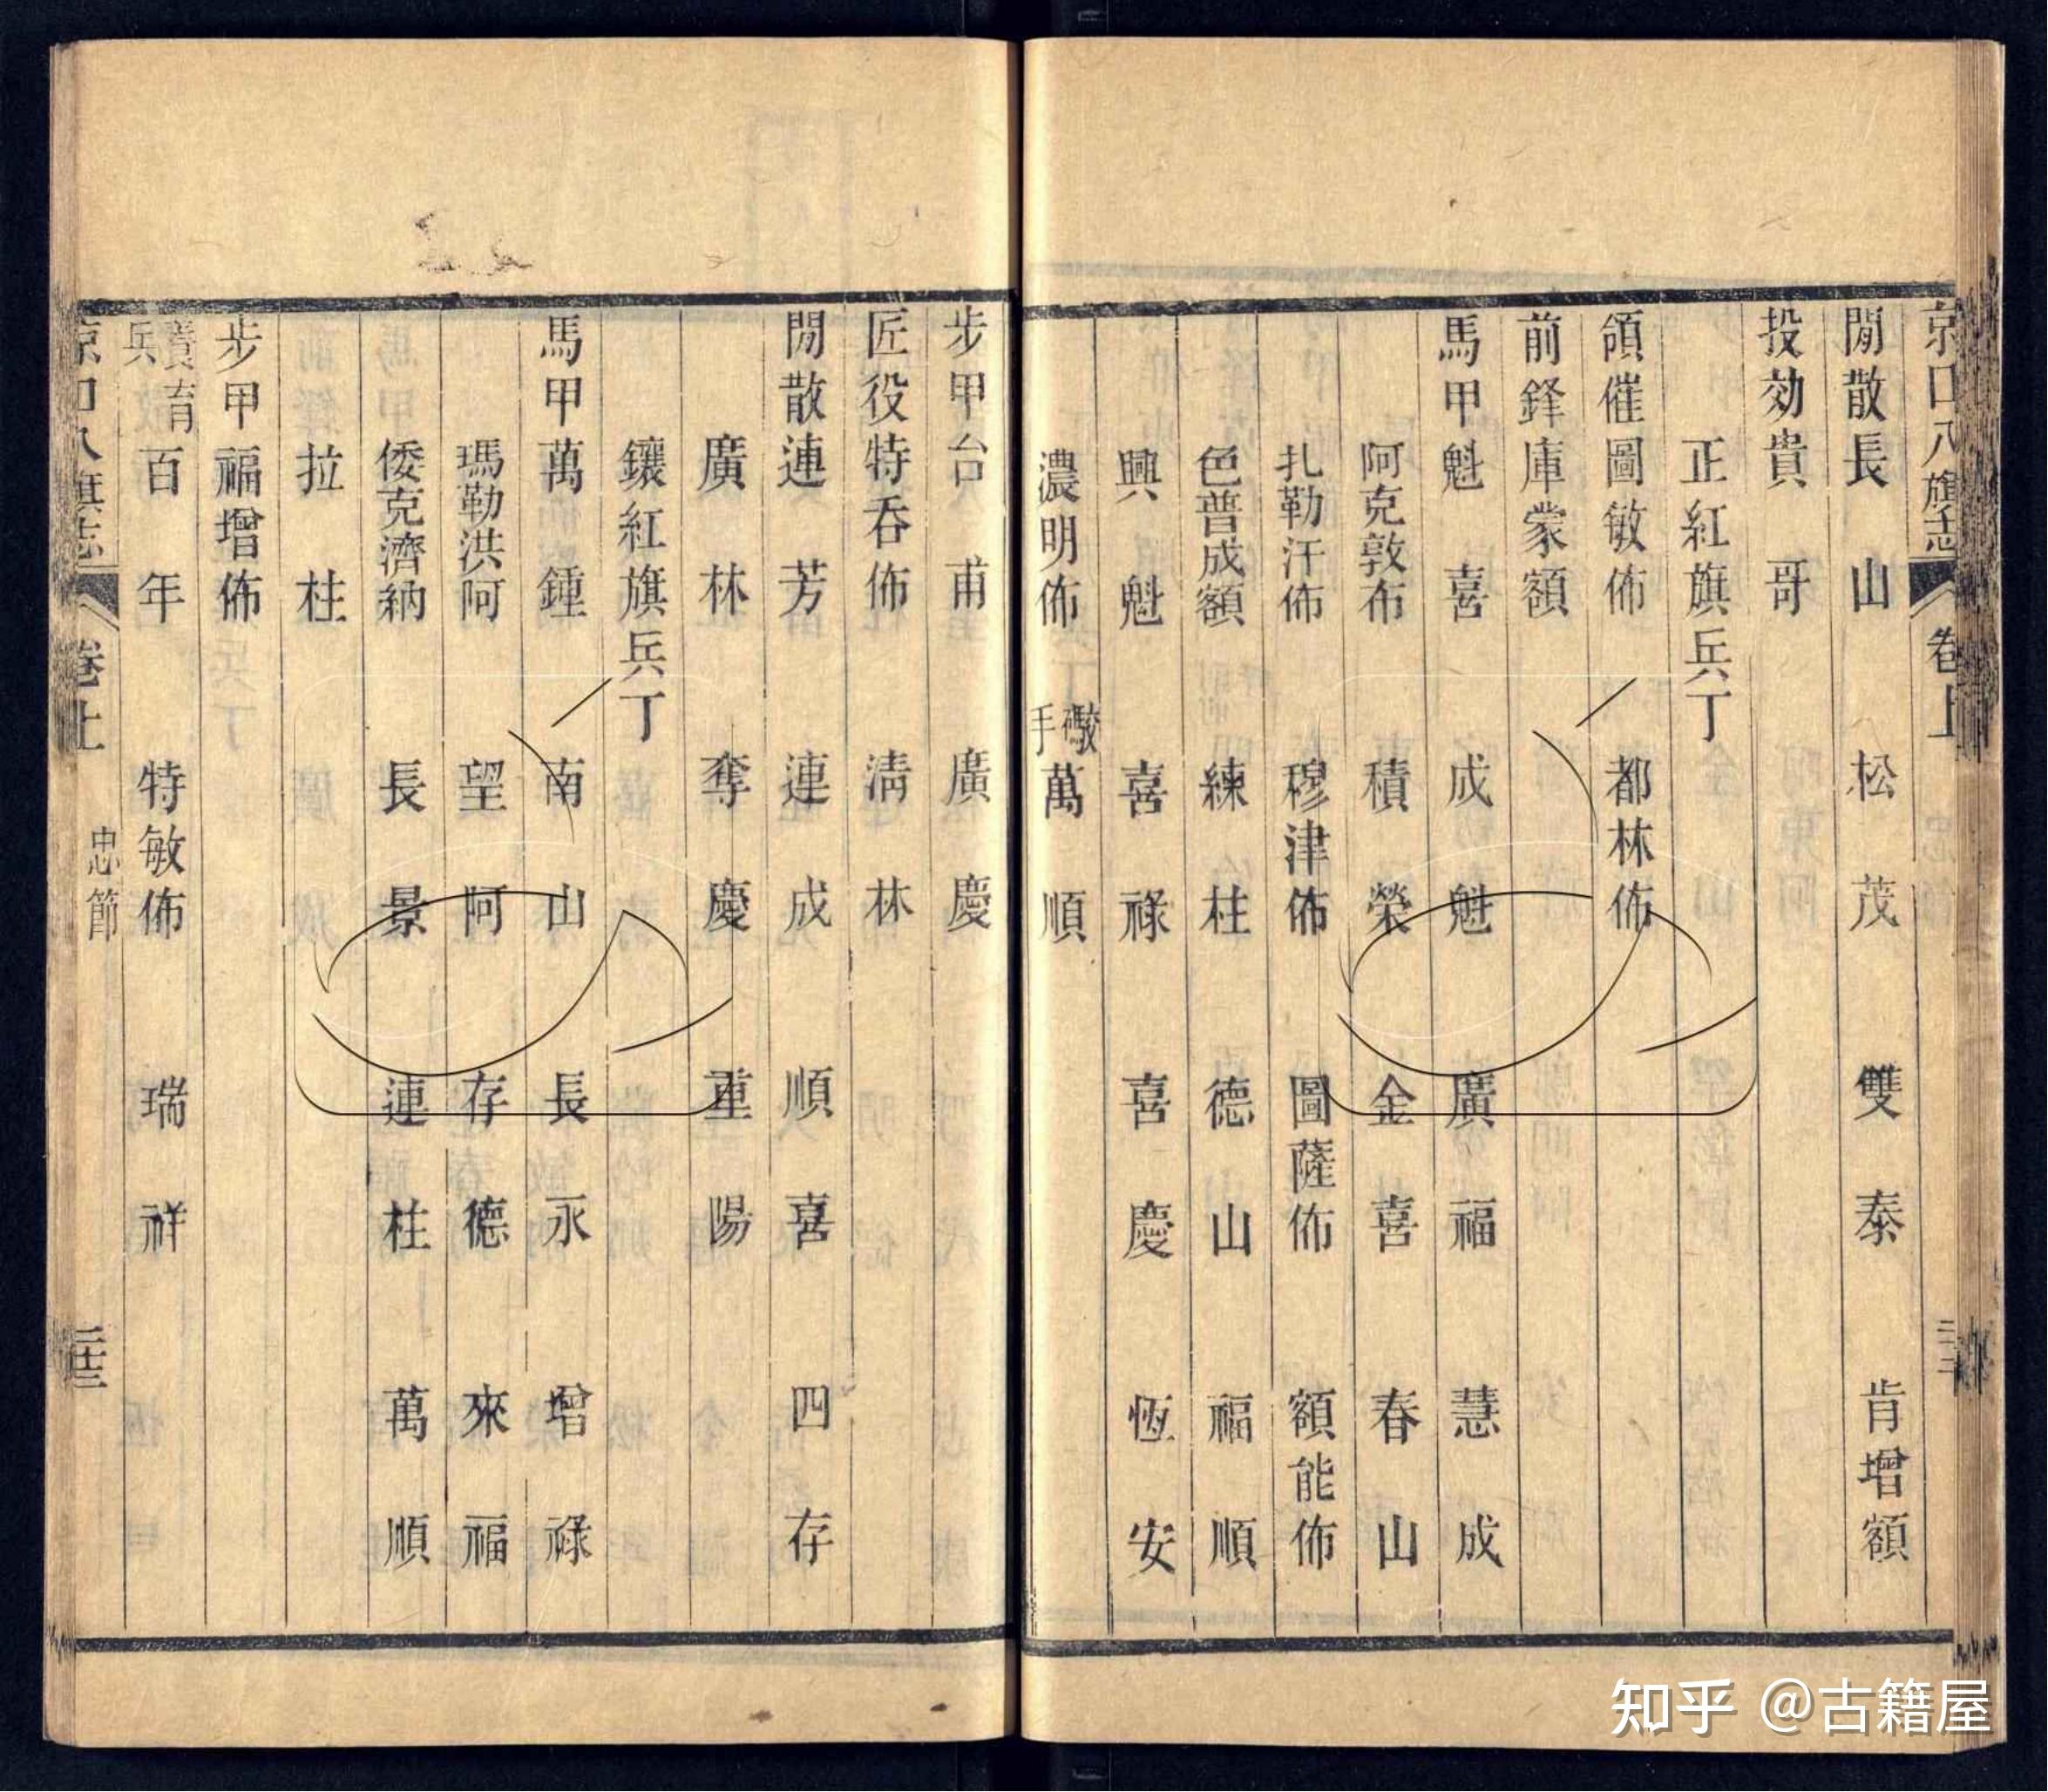 京口八旗志 卷上
閒散長山 松茂 雙泰 肯增額
投効貴哥
正紅旗兵丁
領催圖敏佈 都林佈
前鋒庫蒙額
馬甲魁喜 成魁 廣福 慧成
阿克敦布 積榮 金喜 春山
扎勒汗佈 穆津佈 圖薩佈 額能佈
色普成額 練柱 德山 福順
興魁 喜祿 喜慶 恆安
濃明佈 礮手萬順
步甲台甫 廣慶
匠役特吞佈 淸林
閒散連芳 連成 順喜 四存
廣林 奪慶 重陽
鑲紅旗兵丁
馬甲萬鍾 南山 長永 增祿
瑪勒洪阿 望阿 存德 來福
倭克濟納 長景 連柱 萬順
拉柱
步甲福增佈
養育兵百年 特敏佈 瑞祥
京口八旗志 卷上 忠節 二十三
知乎 @古籍屋